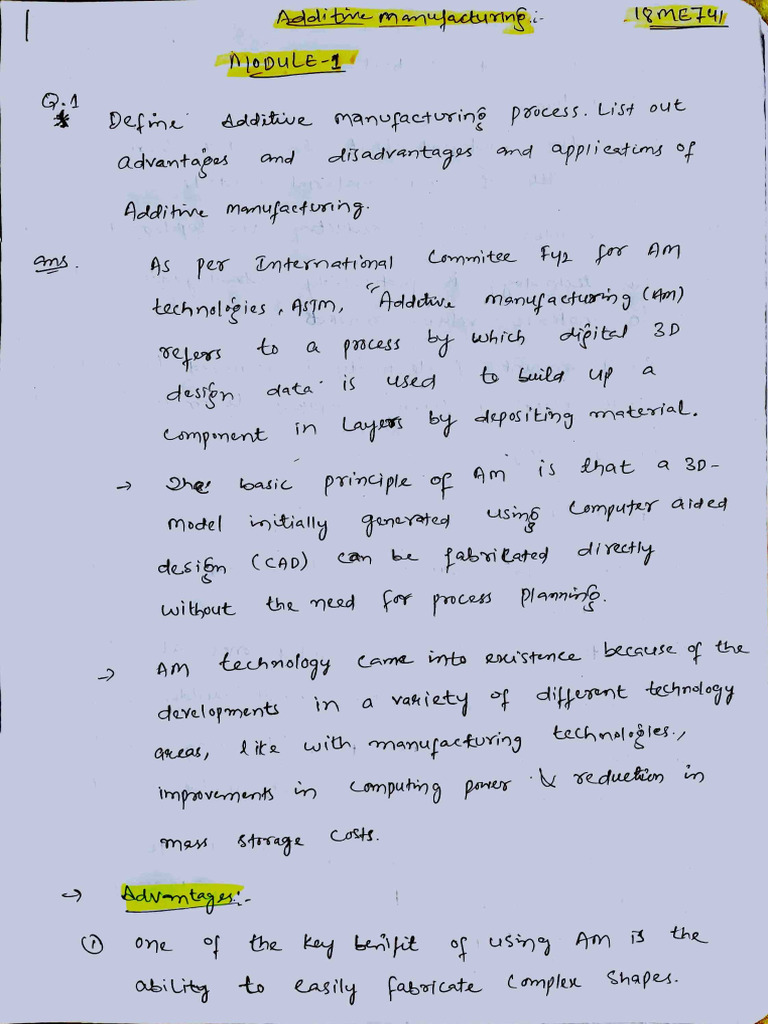 1
Additive manufacturing:- 18ME741
MODULE-1
Q.1 Define Additive manufacturing process. List out
advantages and disadvantages and applications of
Additive manufacturing.
ans. As per International Commitee F42 for AM
technologies, ASTM, "Additive manufacturing (AM)
refers to a process by which digital 3D
design data is used to build up a
component in layers by depositing material.
→ The basic principle of AM is that a 3D-
model initially generated using computer aided
design (CAD) can be fabricated directly
without the need for process planning.
→ AM technology came into existence because of the
developments in a variety of different technology
areas, like with manufacturing technologies.,
improvements in computing power & reduction in
mass storage costs.
→ Advantages:-
① one of the key benifit of using AM is the
ability to easily fabricate complex shapes.